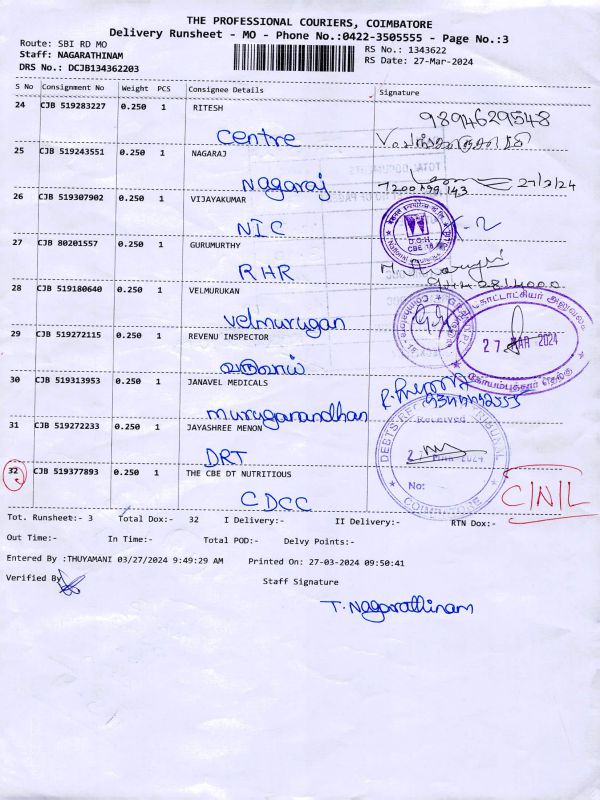 THE PROFESSIONAL COURIERS, COIMBATORE
Delivery Runsheet - MO - Phone No.:0422-3505555 - Page No.:3
Route: SBI RD MO
Staff: NAGARATHINAM
DRS No.: DCJB134362203
RS No.: 1343622
RS Date: 27-Mar-2024
S No Consignment No Weight PCS Consignee Details Signature
24 CJB 519283227 0.250 1 RITESH
9894629548
Centre
25 CJB 519243551 0.250 1 NAGARAJ
Nagaraj 27/3/24
26 CJB 519307902 0.250 1 VIJAYAKUMAR
NIC
27 CJB 80201557 0.250 1 GURUMURTHY
RHR
28 CJB 519180640 0.250 1 VELMURUKAN
Velmurugan
27 MAR 2024
29 CJB 519272115 0.250 1 REVENU INSPECTOR
வருவாய்
30 CJB 519313953 0.250 1 JANAVEL MEDICALS
Muruganandhan
31 CJB 519272233 0.250 1 JAYASHREE MENON
DRT
Received
MAR 2024
No:
COIMBATORE
32 CJB 519377893 0.250 1 THE CBE DT NUTRITIOUS
CDCC
C/N/L
Tot. Runsheet:- 3 Total Dox:- 32 I Delivery:- II Delivery:- RTN Dox:-
Out Time:- In Time:- Total POD:- Delvy Points:-
Entered By :THUYAMANI 03/27/2024 9:49:29 AM Printed On: 27-03-2024 09:50:41
Verified By
Staff Signature
T. Nagarathinam